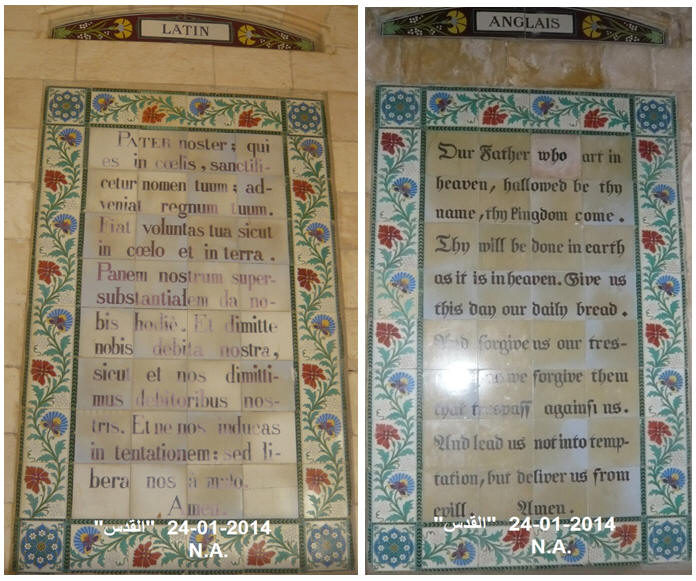 LATIN
PATER noster; qui
es in cœlis, sanctifi-
cetur nomen tuum; ad-
veniat regnum tuum.
Fiat voluntas tua sicut
in cœlo et in terra.
Panem nostrum super-
substantialem da no-
bis hodiè. Et dimitte
nobis debita nostra,
sicut et nos dimitti-
mus debitoribus nos-
tris. Et ne nos inducas
in tentationem: sed li-
bera nos à malo.
Amen.
"القدس" 24-01-2014
N.A.
ANGLAIS
Our Father who art in
heaven, hallowed be thy
name, thy kingdom come.
Thy will be done in earth
as it is in heaven. Give us
this day our daily bread.
And forgive us our tres-
as we forgive them
that trespass against us.
And lead us not into temp-
tation, but deliver us from
evill. Amen.
"القدس" 24-01-2014
N.A.